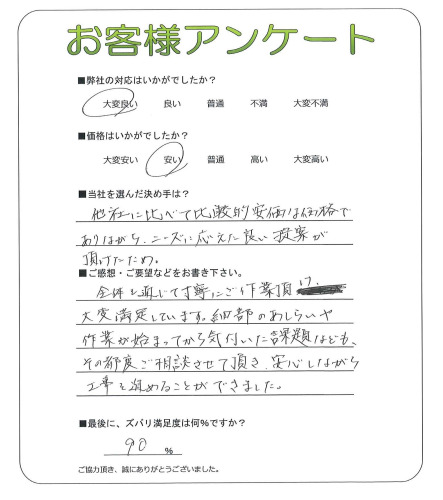 お客様アンケート
■弊社の対応はいかがでしたか？
大変良い 良い 普通 不満 大変不満
■価格はいかがでしたか？
大変安い 安い 普通 高い 大変高い
■当社を選んだ決め手は？
他社に比べて比較的安価な価格で
ありながら、ニーズに応えた良い提案が
頂けたため。
■ご感想・ご要望などをお書き下さい。
全体を通じて丁寧にご作業頂け、
大変満足しています。細部のあしらいや
作業が始まってから気付いた課題なども、
その都度ご相談させて頂き、安心しながら
工事を進めることができました。
■最後に、ズバリ満足度は何%ですか？
90 %
ご協力頂き、誠にありがとうございました。